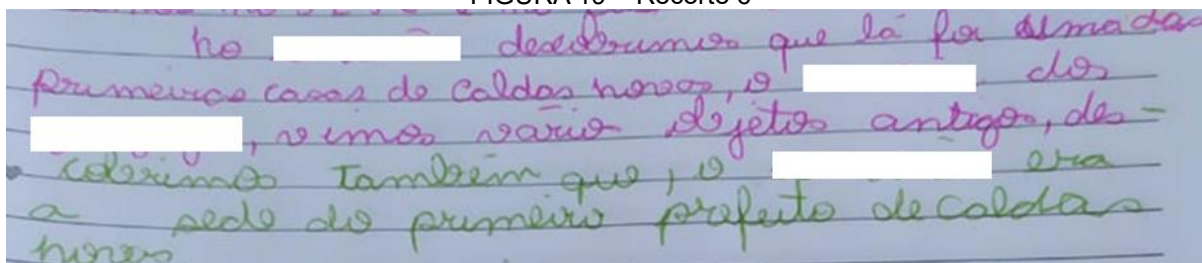 FIGURA 10 – Recorte 6
no descobrimos que lá foi uma das
primeiras casas de Caldas novas, o dos
, vimos vario objetos antigos, des-
cobrimos também que, o era
a sede do primeiro prefeito de Caldas
novas